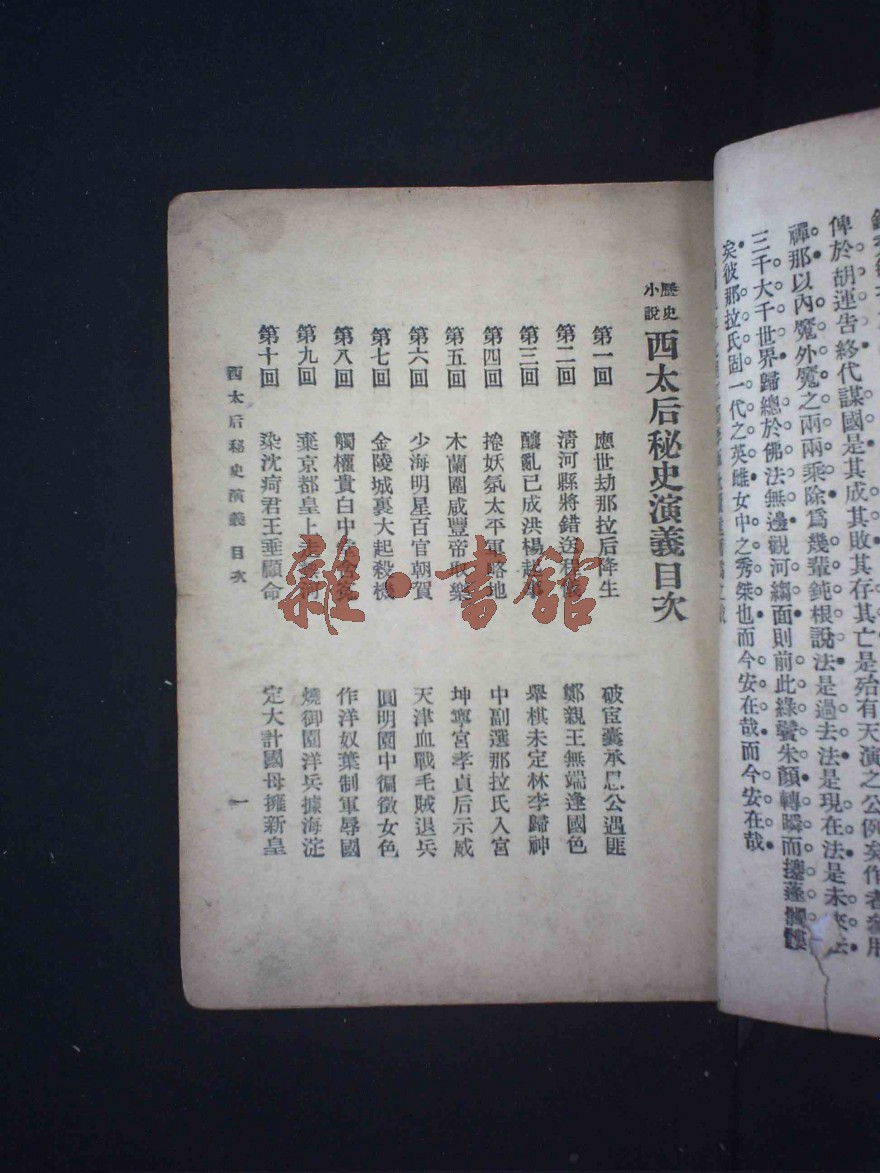 俾於胡連告終代謀國是其成其敗其存其亡是殆有天演之公例矣作者參用
禪那以內魔外魔之兩兩乘除爲幾輩鈍根說法是過去法是現在法是未來法
三千大千世界歸總於佛法無邊觀河縐面則前此綠鬢朱顏轉瞬而蓬髑髏
矣彼那拉氏固一代之英雌女中之秀桀也而今安在哉而今安在哉
歷史小說 西太后秘史演義目次
第一回 應世劫那拉后降生 破宦囊承恩公遇匪
第二回 清河縣將錯送 鄭親王無端逢國色
第三回 釀亂已成洪楊起 舉棋未定林李歸神
第四回 捲妖氛太平軍略地 中副選那拉氏入宮
第五回 木蘭圍咸豐帝耽樂 坤寧宮孝貞后示威
第六回 少海明星百官朝賀 天津血戰毛賊退兵
第七回 金陵城裏大起殺機 圓明園中徧徵女色
第八回 觸權貴白中堂含冤 作洋奴葉制軍辱國
第九回 棄京都皇上走熱河 燒御園洋兵據海淀
第十回 染沈疴君王垂顧命 定大計國母擁新皇
西太后秘史演義 目次 一
雜·書館